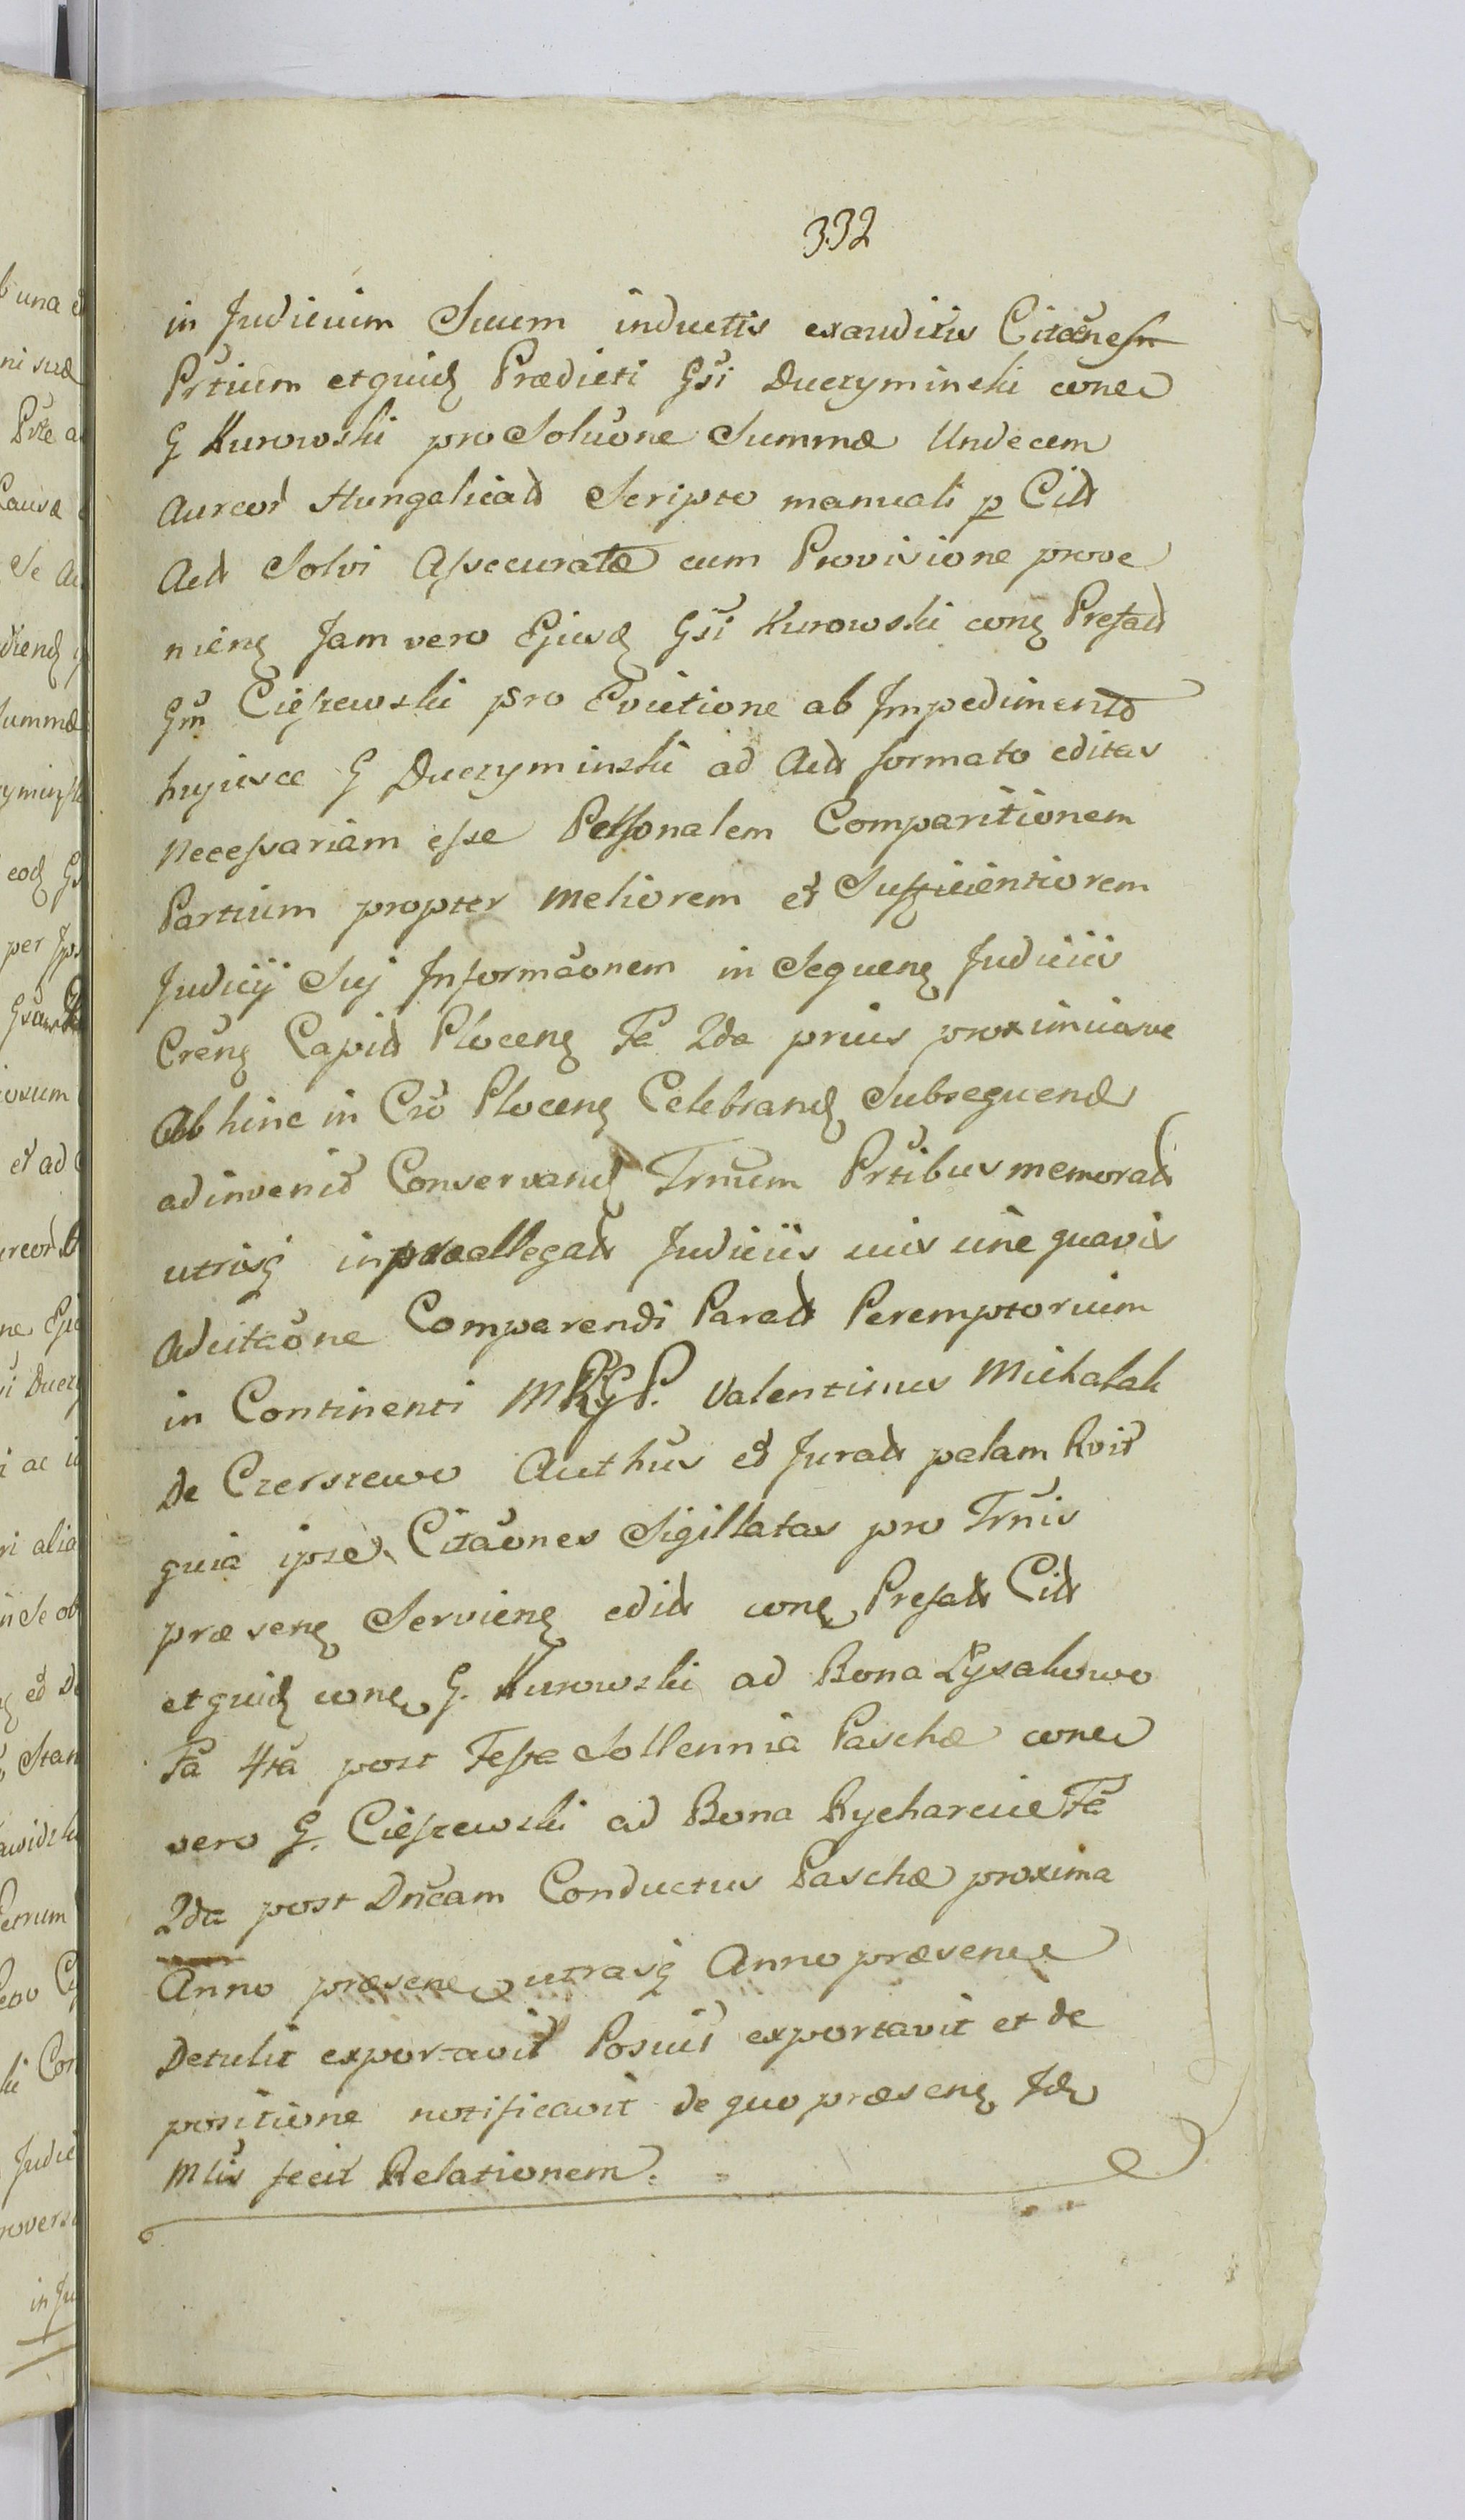 332
in Judicium Suum inductis exauditis Citaōnes
Prtium et quid Prædicti Gsi Duczyminski cone
G Kurowski pro Soluōne Summæ Undecem
Aureor Hungalicals Scripto manuali p Cits
Acts Solvi Assecuratæ cum Provisione prove
nien Jam vero Ejusd Gsi Kurowski con Prefats
Gm Cieszewski pro Evictione ab Impedimento
hujusce G Duczyminski ad Acts formato editas
Necessariam esse Personalem Comparitionem
Partium propter Meliorem et Sufficientiorem
Judicij Suj Informaōnem in Sequen Judiciis
Cren Capit Plocen Fa 2da prius proximiusve
Abhinc in Cro Plocen Celebrand Subsequend
adinvenit Conservand Trnum Prtibus memorats
utrisq in præallegats Judiciis uis une quavis
Adcitaōne Comparendi Parats Peremptorium
in Continenti MRGP. Valentinus Michalak
De Czerszewo Authus et Jurats palam Rvit
quia ipse Citaōnes Sigillatas pro Trnis
præsen Servien edits con Prefats Cits
et quid con G. Kurowski ad Bona Łysakowo
Fa 4ta post Festa Sollennia Paschæ cone
vero G. Cieszewski ad Bona Rycharcice Fa
2da post Dncam Conductus Paschæ proxima
Anno præsene utrasq Anno præsene
Detulit exportavit Posuit exportavit et de
positione notificavit de quo præsen Id
Mlis fecit Relationem.